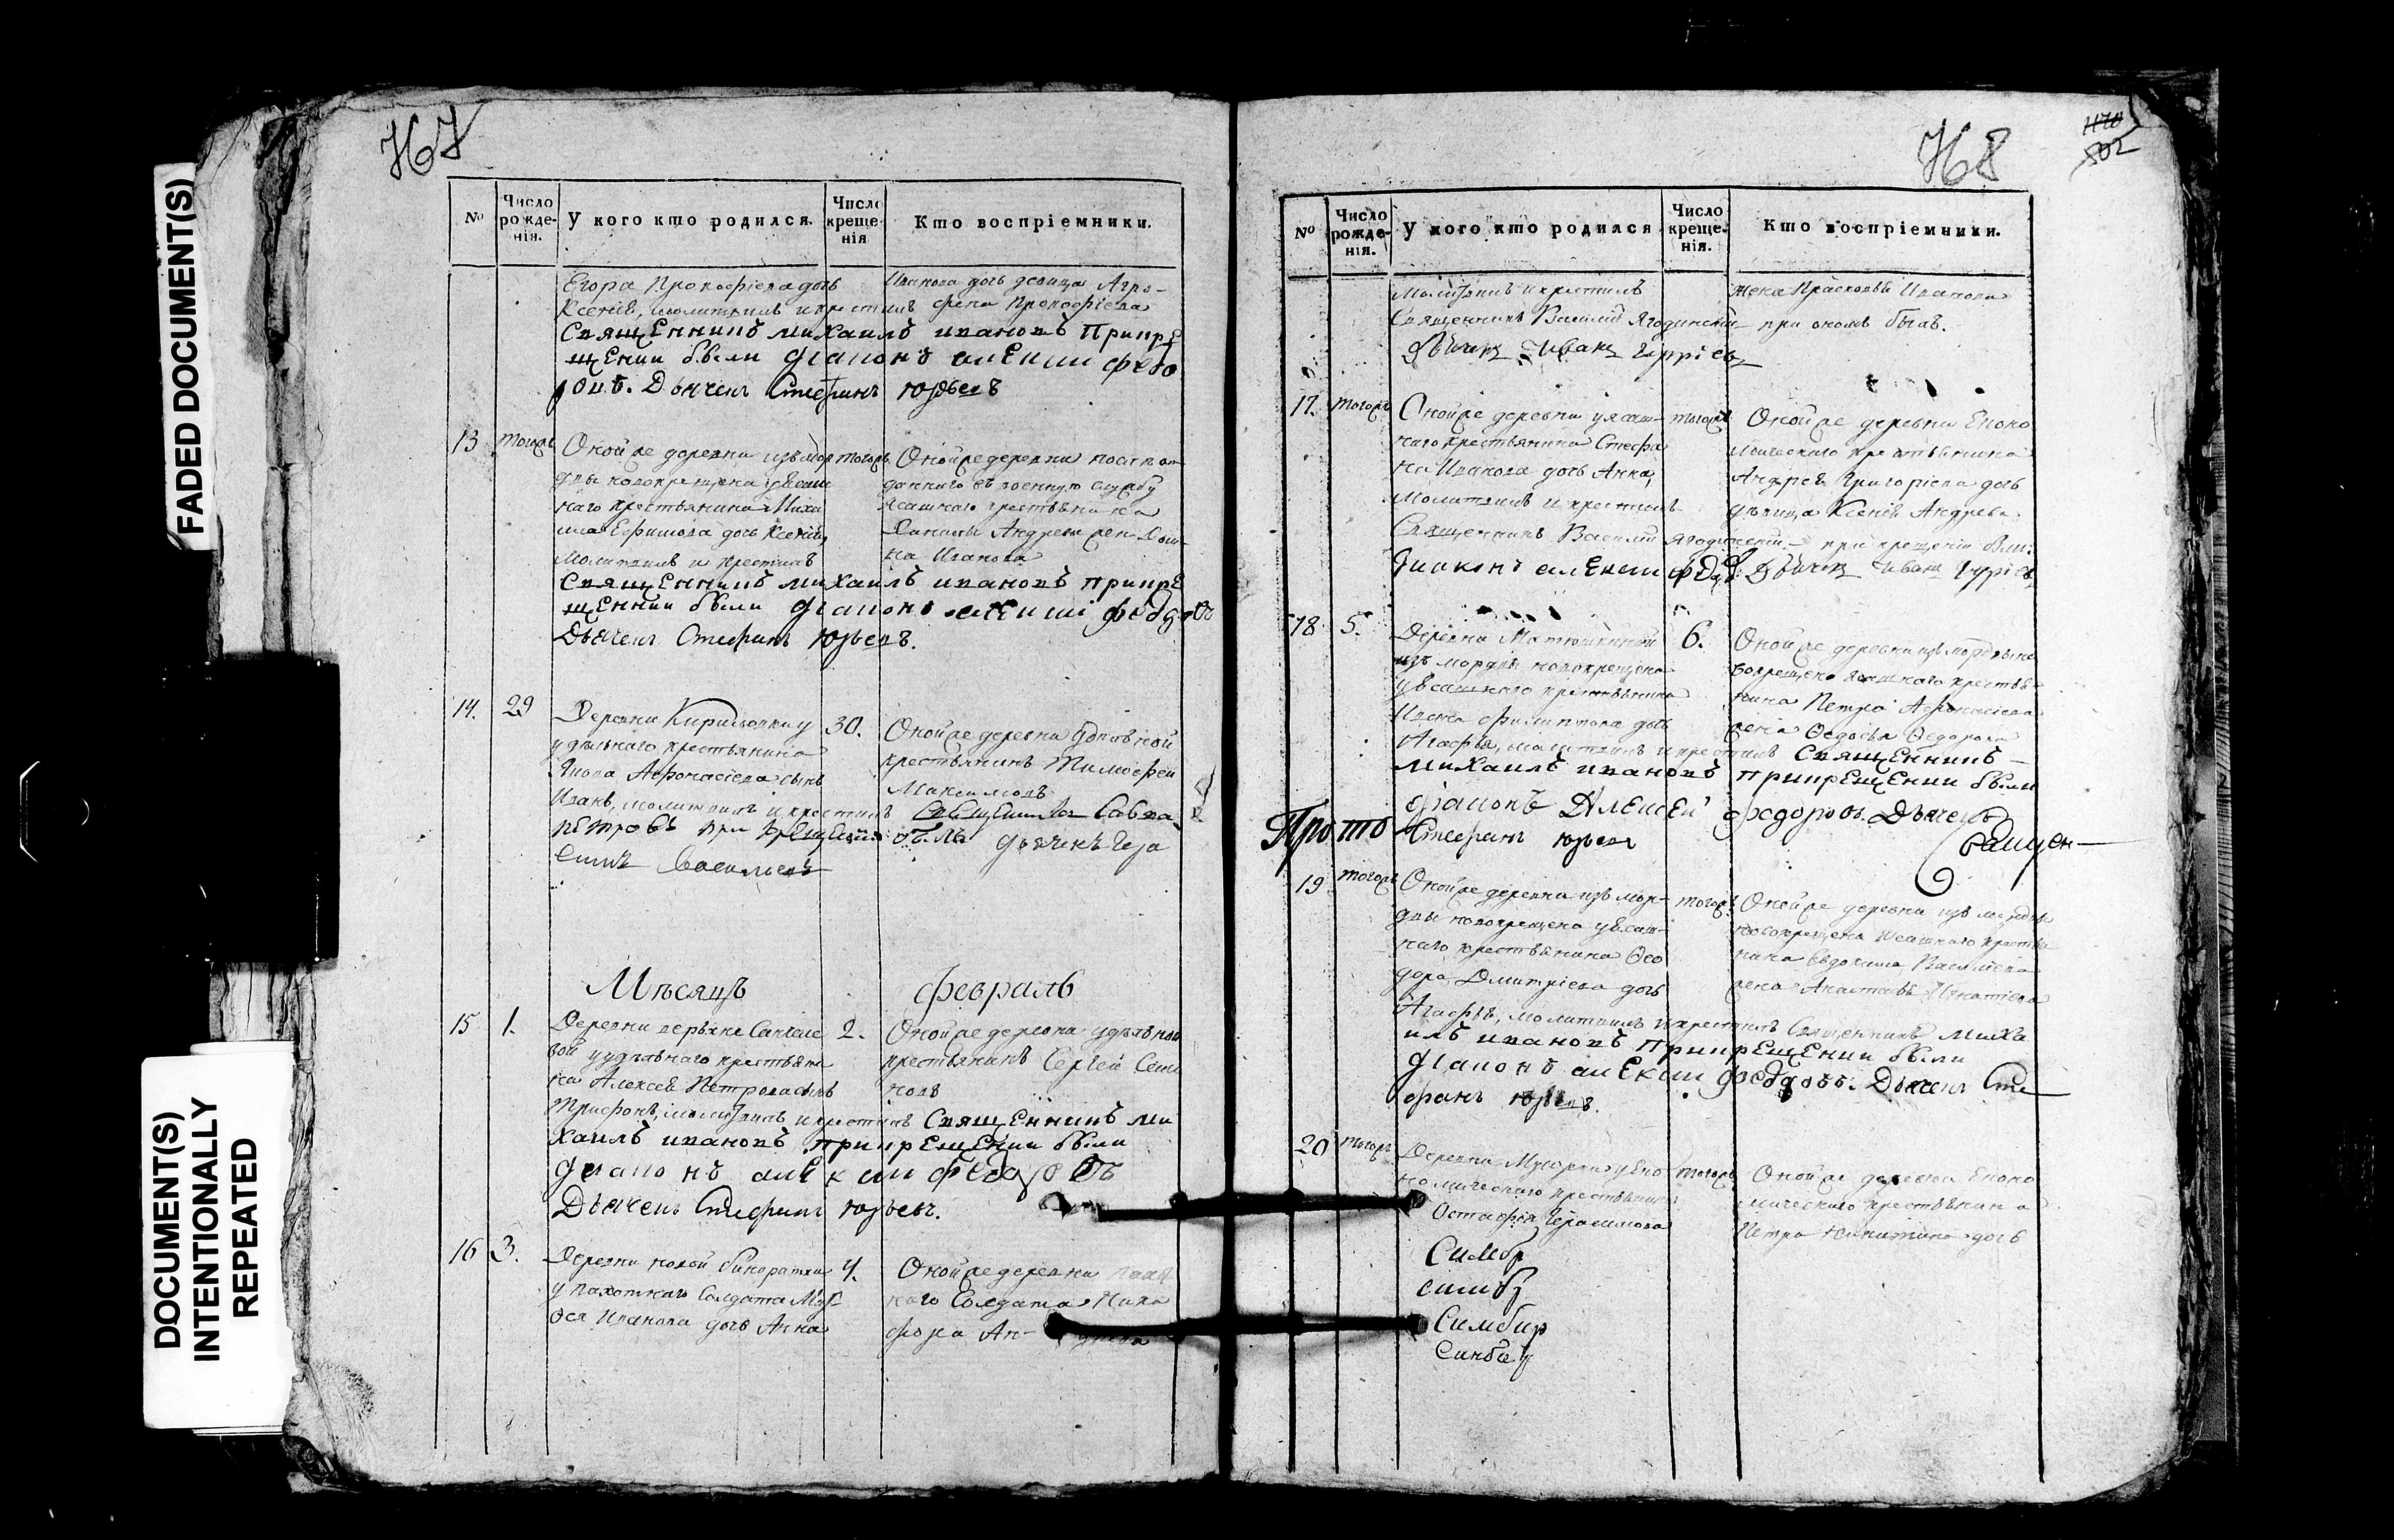 FADED DOCUMENT(S)
DOCUMENT(S)
INTENTIONALLY
REPEATED
№
Число рожде-нія.
У кого кто родился.
Число креще-нія
Кто воспріемники.
Егора Прокофіева дочь
Ксенія, молитвилъ и крестилъ
Священникъ Михаилъ Ивановъ при кре
щении были діаконъ алексии федо
ровъ. Дьячекъ Стефанъ Юрьевъ
Иванова дочь девица Агро-
фена Прокофіева
13
тогожъ
Оной же деревни изъ мор
двы новокрещена у ясаш
наго крестьянина Миха
ила Ефимова дочь Ксенія,
молитвилъ и крестилъ
Священникъ Михаилъ Ивановъ при кре
щении были діаконъ алексиі федоровъ
Дьячекъ Стефанъ Юрьевъ.
тогожъ
Оной же деревни
даннаго въ военную службу
ясашнаго крестьянина
Данилы Андреева жена
на Иванова
14.
29
Деревни Кирилловки у
удельнаго крестьянина
Якова Афонасіева сынъ
Иванъ, молитвилъ и крестилъ Савва
петровъ при крещении былъ дьячекъ Гера
симъ Васильевъ
30.
Оной же деревни удельной
крестьянинъ Тимофеи
Максимовъ
Мѣсяцъ Февраль
15
1.
Деревни верьхне Санчеле
вой у удѣльнаго крестьяни
на Алексея Петрова сынъ
Трифонъ, молитвилъ и крестилъ Священникъ Ми
хаилъ ивановъ при крещении были
діаконъ алексии федоровъ
Дьячекъ Стефанъ Юрьевъ.
2.
Оной же деревни удѣльной
крестьянинъ Сергей Семе
новъ
16
3.
Деревни новой бинаратки
у пахотнаго Солдата
Иванова дочь Анна
4.
Оной же деревни
наго Солдата Ники
фора Ан-
№
Число рожде-нія.
У кого кто родился
Число креще-нія.
Кто воспріемники.
Молитвилъ и крестилъ
Священникъ Василий Ягодинский
Дьячекъ Иванъ
жена Прасковья Иванова
при ономъ былъ.
17.
тогожъ
Оной же деревни у ясаш-
наго крестьянина Стефа
на Иванова дочь Анна,
молитвилъ и крестилъ
Священникъ Василий Ягодинский. при крещеніи были
Диаконъ алексии федоровъ Дьячекъ Иванъ
тогожъ
Оной же деревни Еконо
мическаго крестьянина
Андрея Григоріева дочь
дѣвица Ксенія Андреева
18
5.
Деревни Матюшкиной
изъ мордвы новокрещена
у ясашнаго крестьянина
Ивана Филиппова дочь
Агафья, молитвилъ и крестилъ Священникъ
Михаилъ ивановъ при крещении были
діаконъ Алексей федоровъ. Дьячекъ
Стефанъ Юрьевъ
6.
Оной же деревни изъ мордвы но
вокрещена ясашнаго крестья-
нина Петра Афонасіева
жена Федосья Федорова
Прото
19
тогожъ
Оной же деревни изъ мор-
двы новокрещена у ясаш-
наго крестьянина Фео
дора Дмитріева дочь
Агафья, молитвилъ и крестилъ Священникъ Миха
илъ ивановъ при крещении были
діаконъ алексии федоровъ. Дьячекъ Сте
фанъ Юрьевъ.
тогожъ
Оной же деревни изъ мордвы
новокрещена ясашнаго крестья
нина Евдокима Василіева
жена Игнатіева
20
тогожъ
Деревни у Еко
номическаго крестьянина
Остафья Герасимова
тогожъ
Оной же деревни Еконо
мическаго крестьянина
Петра Никитина дочь
Симбр
симбр
Симбир
Синбир